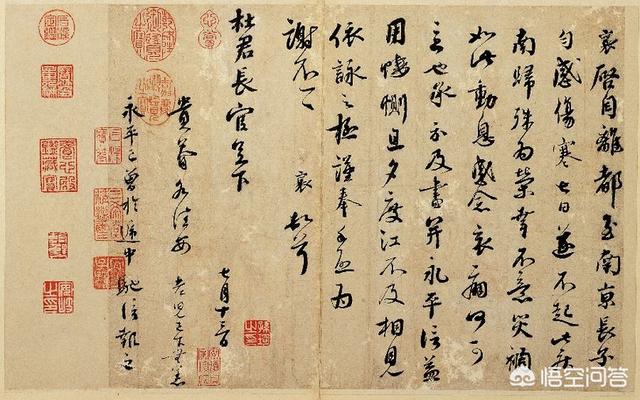 襄啓自離都至南京長子
勻感傷寒七日遂不起此疾
南歸殊為榮幸不意災禍
如此動息感念哀痛何可
言也承示及書并永平信益
用悽惻旦夕度江不及相見
依詠之極謹奉手啓為
謝不一一 襄頓首
杜君長官足下
七月十三日
貴眷各佳安 老兒已下無恙
永平已曾於遞中馳信報之
悟空问答